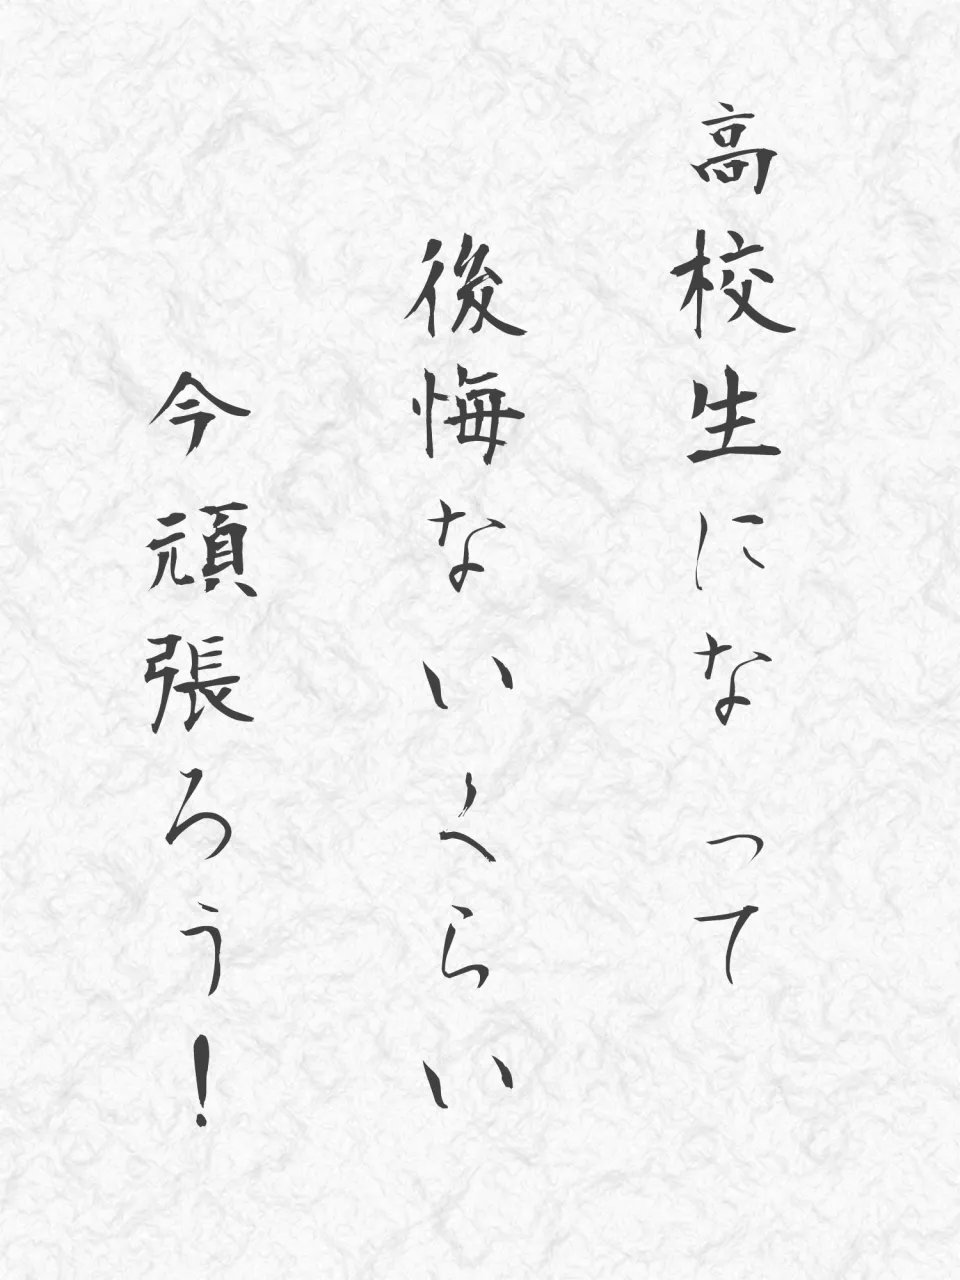 高校生になって
後悔ないくらい
今頑張ろう！